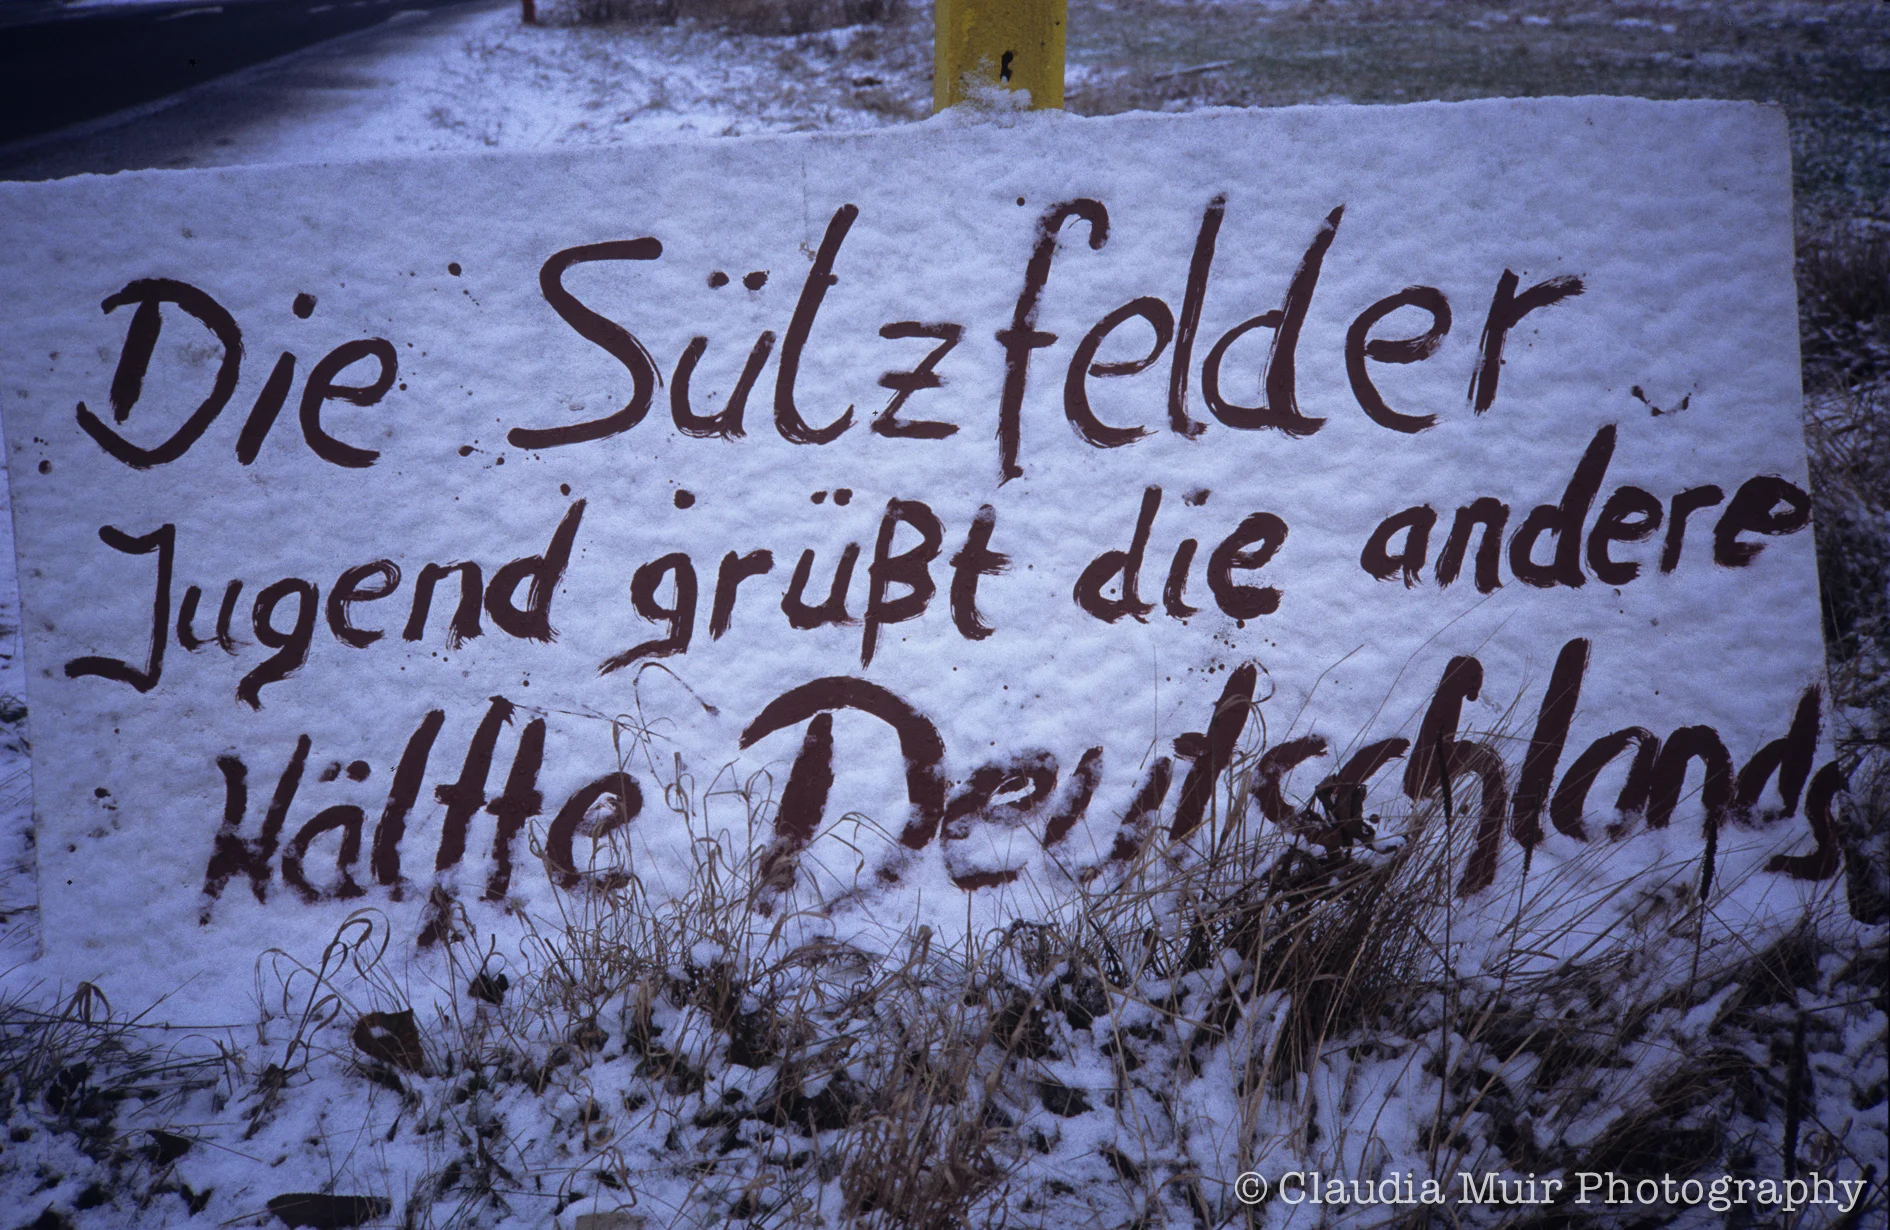 Die Sülzfelder
Jugend grüßt die andere
Hälfte Deutschlands
© Claudia Muir Photography